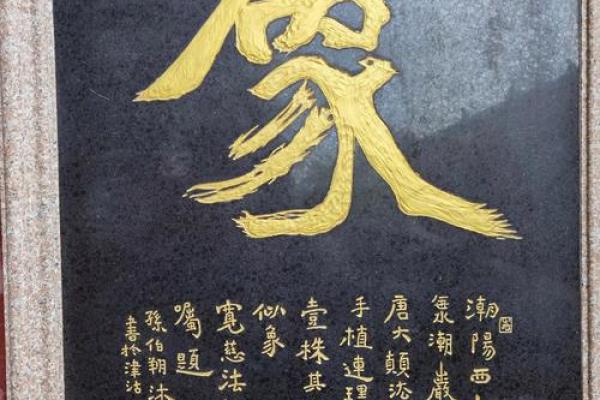 潮陽西
潮巖
唐大顛法
手植連理
壹株其
似象
寬慈法
囑題
孫伯翔
書於津沽